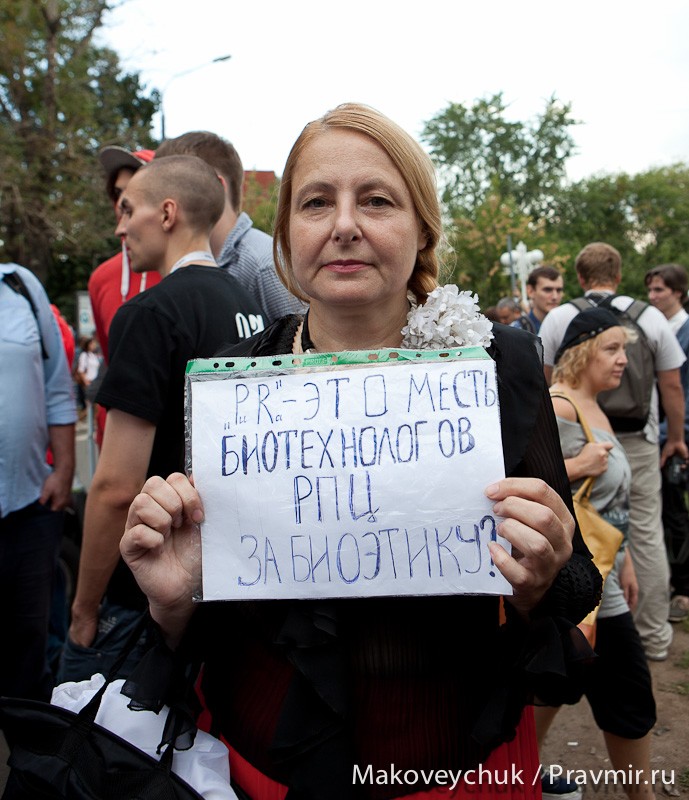 „PR“-ЭТО МЕСТЬ
БИОТЕХНОЛОГОВ
РПЦ
ЗА БИОЭТИКУ?
Makoveychuk / Pravmir.ru